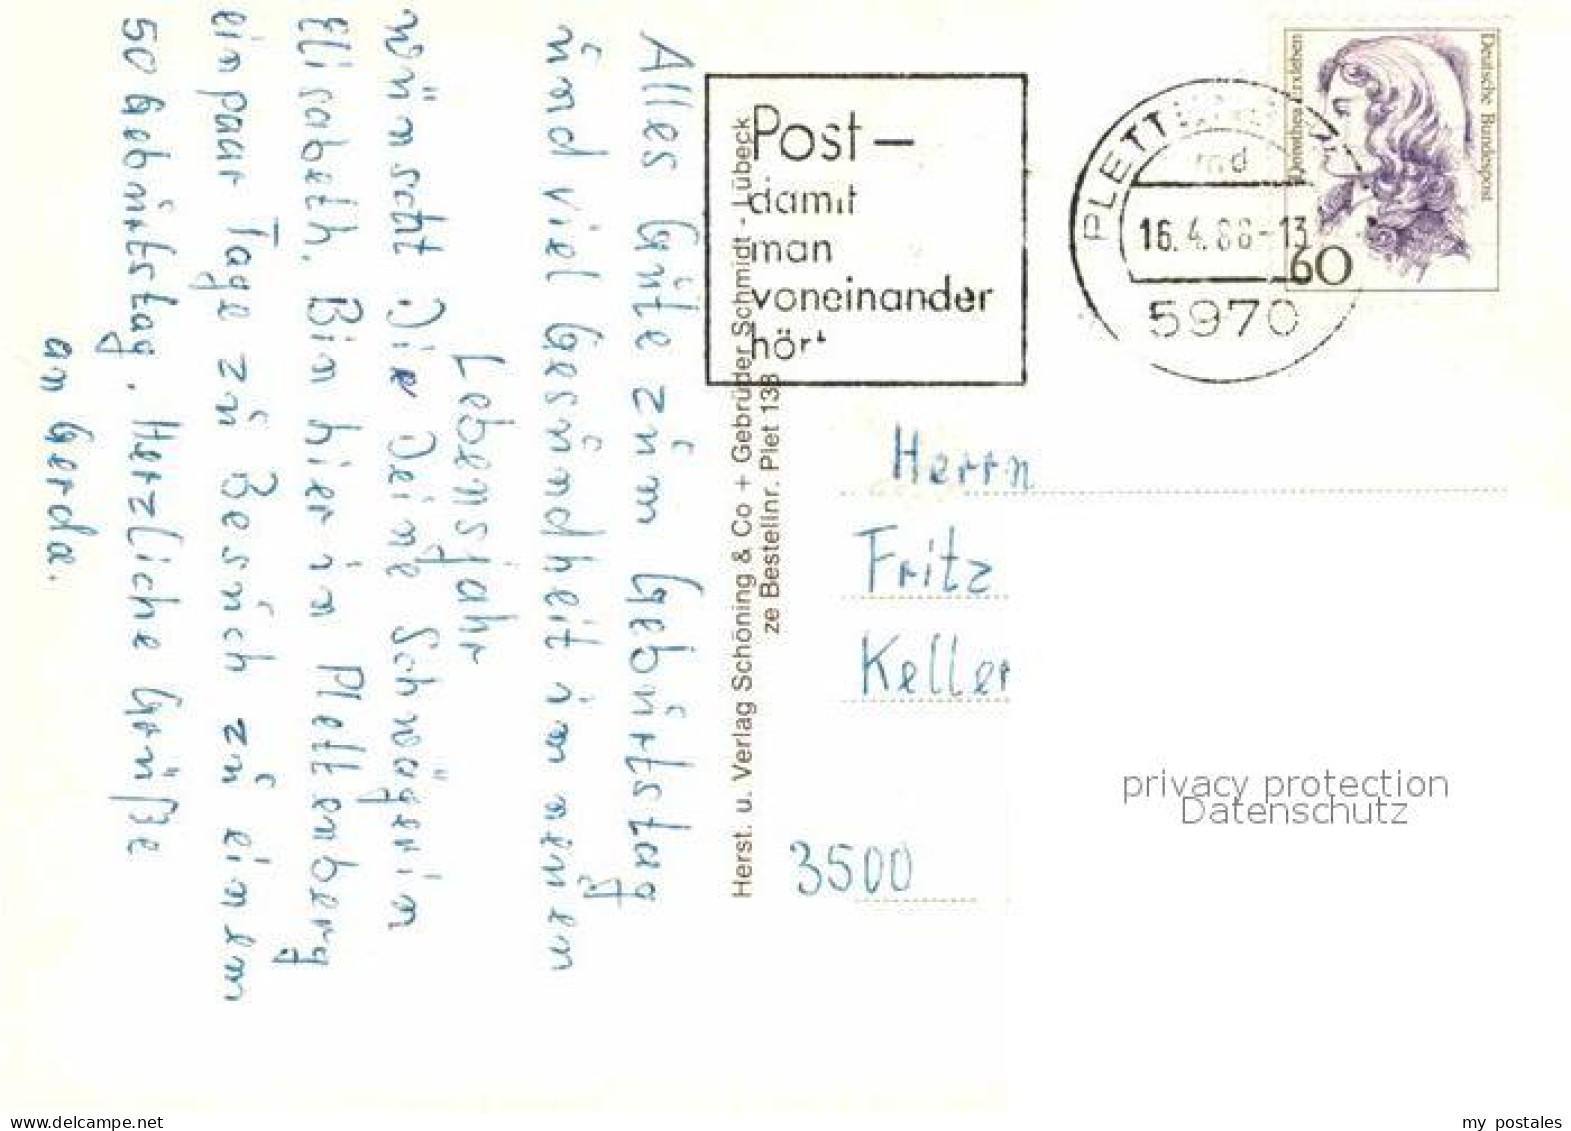 Alles Gute zum Geburtstag
und viel Gesundheit im neuen
Lebensjahr
wünscht Dir Deine Schwägerin
Elisabeth. Bin hier in Plettenberg
ein paar Tage zu Besuch zu einem
50 Geburtstag. Herzliche Grüße
an Gerda.
Herst. u. Verlag Schöning & Co + Gebrüder Schmidt - Lübeck
ze Bestellnr. Plet 138
Post –
damit
man
voneinander
hört
16.4.88-13
5970
Deutsche Bundespost
Dorothea Erxleben
60
Herrn
Fritz
Keller
3500
privacy protection
Datenschutz
www.delcampe.net
my_postales